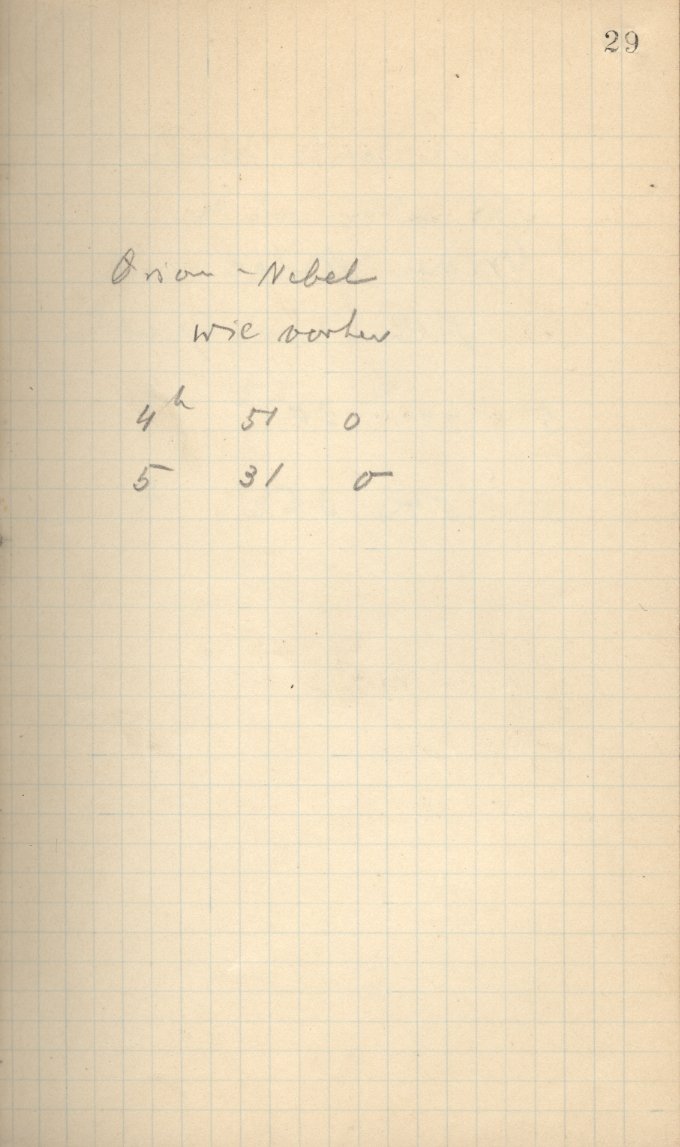 29
Orion-Nebel
wie vorher
4h 51 0
5 31 0